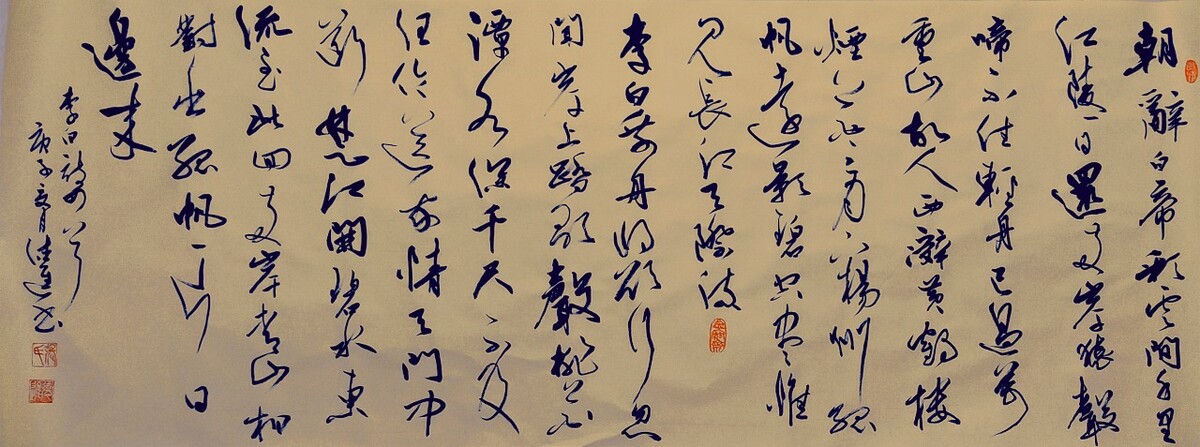 朝辭白帝彩雲間千里
江陵一日還兩岸猿聲
啼不住輕舟已過萬
重山故人西辭黃鶴樓
煙花三月下揚州孤
帆遠影碧空盡惟
見長江天際流
李白乘舟將欲行忽
聞岸上踏歌聲桃花
潭水深千尺不及
汪倫送我情天門中
斷楚江開碧水東
流至此回兩岸青山相
對出孤帆一片日
邊來
李白詩
庚子夏月